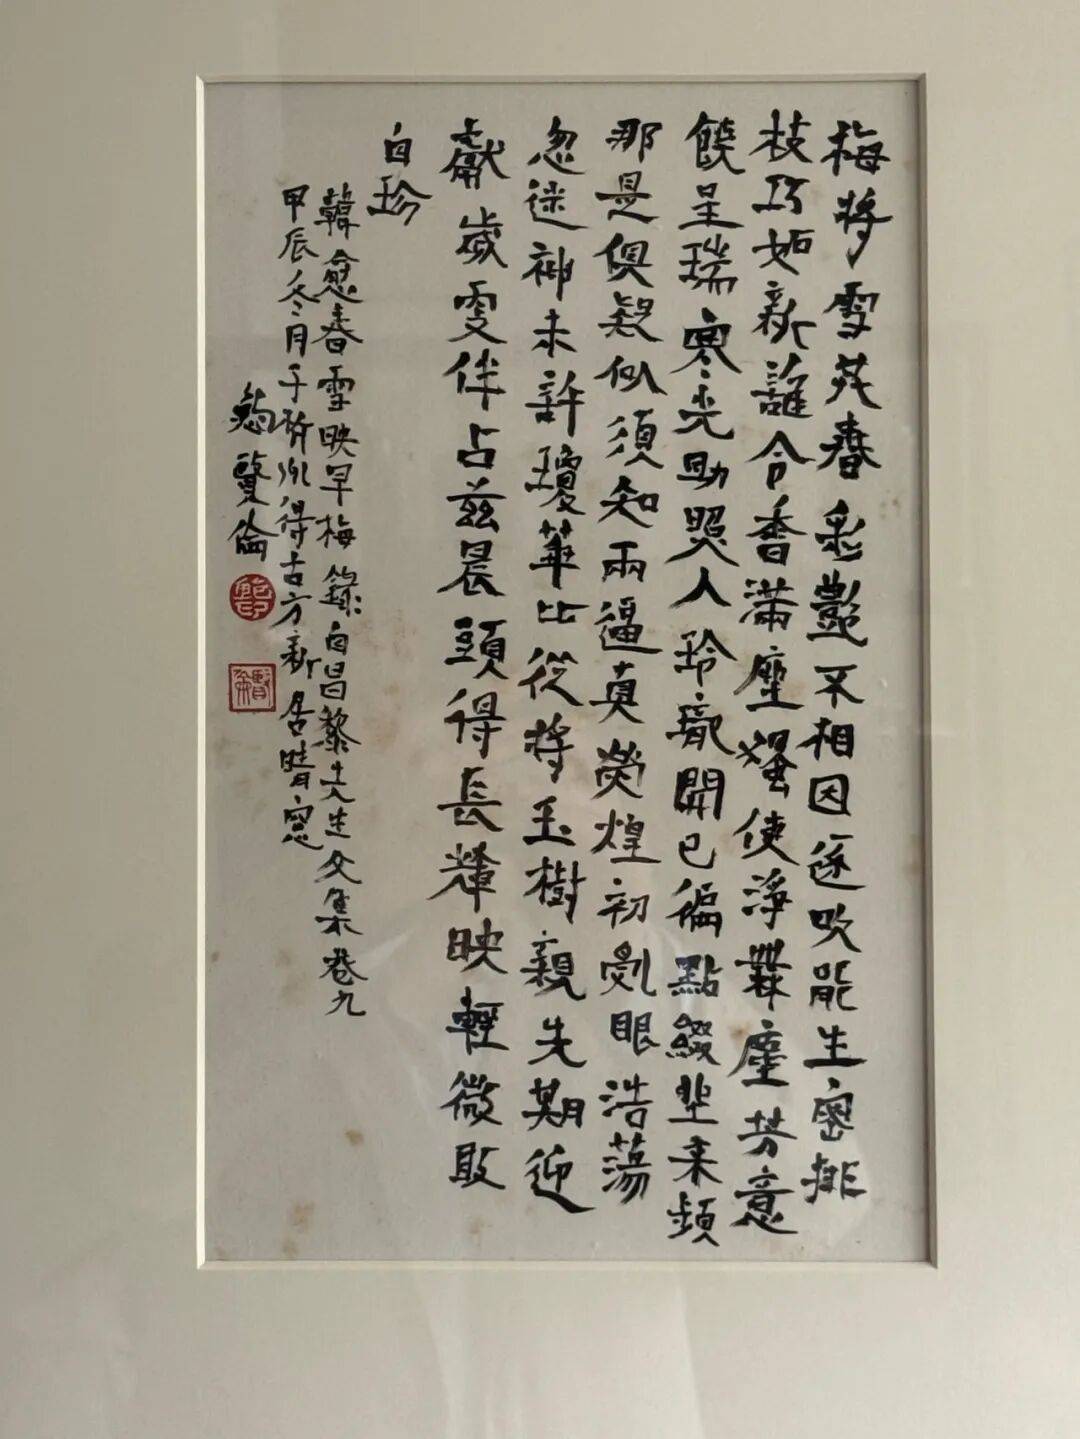 梅將雪共春彩豔不相因逐吹能生密排
枝巧如新誰令香滿座獨使淨無塵芳意
饒呈瑞寒光助照人玲瓏開已徧點綴坐來頻
那是俱疑似須知兩逼真熒煌初亂眼浩蕩
忽迷神未許瓊華比從將玉樹親先期迎
獻歲更伴占茲晨願得長輝映輕微敢
自珍
韓愈春雪映早梅 錄自昌黎先生文集卷九
甲辰冬月于杭州得古方新居晴窗
鮑賢倫
鮑
賢倫